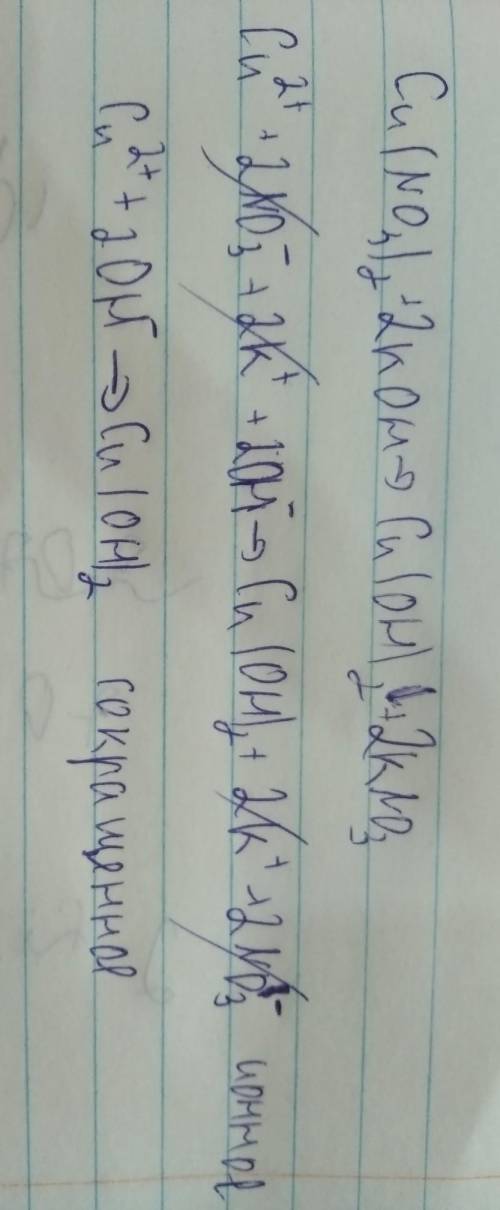 Cu(NO₃)₂ + 2KOH → Cu(OH)₂↓ + 2KNO₃
Cu²⁺ + 2NO₃⁻ + 2K⁺ + 2OH⁻ → Cu(OH)₂ + 2K⁺ + 2NO₃⁻ ионное
Cu²⁺ + 2OH⁻ → Cu(OH)₂ сокращенное